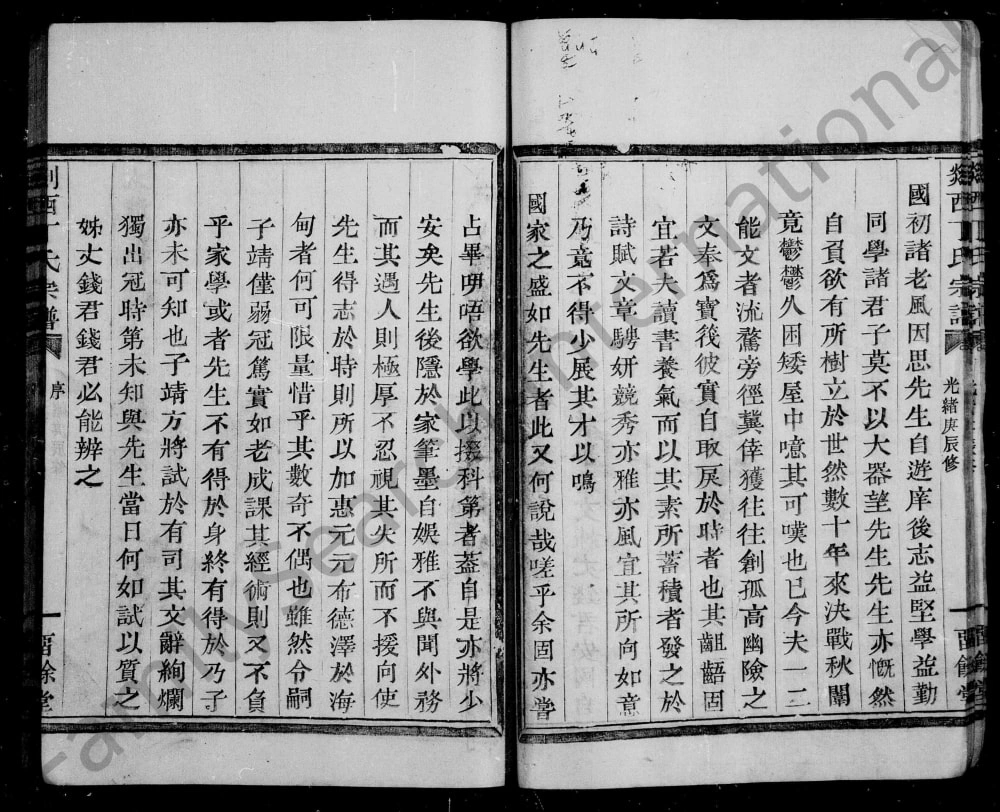 國初諸老風因思先生自遊庠後志益堅學益勤
同學諸君子莫不以大器望先生先生亦慨然
自負欲有所樹立於世然數十年來決戰秋闈
竟鬱鬱久困矮屋中噫其可嘆也已今夫一二
能文者流騖旁徑冀倖獲往往創孤高幽險之
文奉爲寶筏彼實自取戾於時者也其齟齬固
宜若夫讀書養氣而以其素所蓄積者發之於
詩賦文章騁妍競秀亦雅亦風宜其所向如意
乃竟不得少展其才以鳴
國家之盛如先生者此又何說哉嗟乎余固亦嘗
占畢吚唔欲學此以掇科第者蓋自是亦將少
安矣先生後隱於家筆墨自娛雅不與聞外務
而其遇人則極厚不忍視其失所而不援向使
先生得志於時則所以加惠元元布德澤於海
甸者何可限量惜乎其數奇不偶也雖然令嗣
子靖僅弱冠篤實如老成課其經術則又不負
乎家學或者先生不有得於身終有得於乃子
亦未可知也子靖方將試於有司其文辭絢爛
獨出冠時第未知與先生當日何如試以質之
姊丈錢君錢君必能辨之
剡西丁氏宗譜
光緒庚辰修
酉餘堂
剡西丁氏宗譜
序
酉餘堂
FamilySearch International